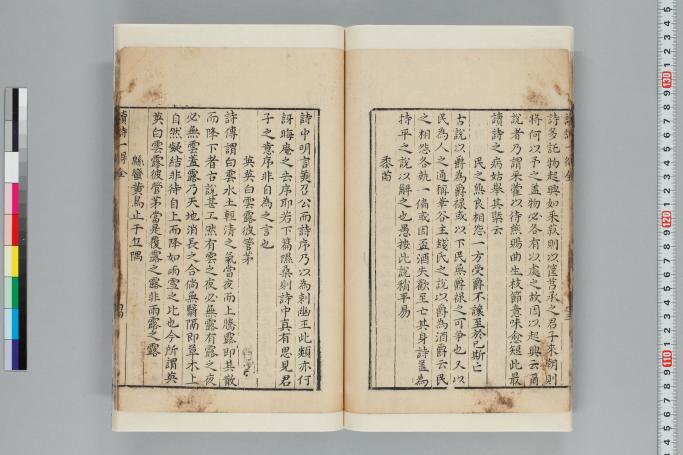 詩多託物起興如采菽則以筐筥承之君子來朝則
將何以予之蓋物必各有以處之故因以起興云爾
說者乃謂采藿以待熊賜曲生枝節意味愈短此最
讀詩之病姑舉其槩云
民之無良相怨一方受爵不讓至於己斯亡
古說以爵為爵祿或以下民無爵祿之可爭也又以
民為人之通稱華谷主錢氏之說以爵為酒爵云民
之相怨各執一偏或因盃酒失歡至亡其身詩蓋為
持平之說以解之也愚按此說稍平易
黍苗
詩中明言美召公而詩序乃以為刺幽王此類亦何
訝晦庵之去序耶若下篇隰桑則詩中真有思見君
子之意序非自為之言也
英英白雲露彼菅茅
詩傳謂白雲水土輕清之氣當夜而上騰露即其散
而降下者古說甚工然有雲之夜必無露有露之夜
必無雲蓋露乃天地消長之合倘無翳隔即草木上
自然凝結非待自上而降如雨雪之比也今所謂英
英白雲露彼菅茅當是覆露之露非雨露之露
緜蠻黄鳥止于丘隅
讀詩一得全